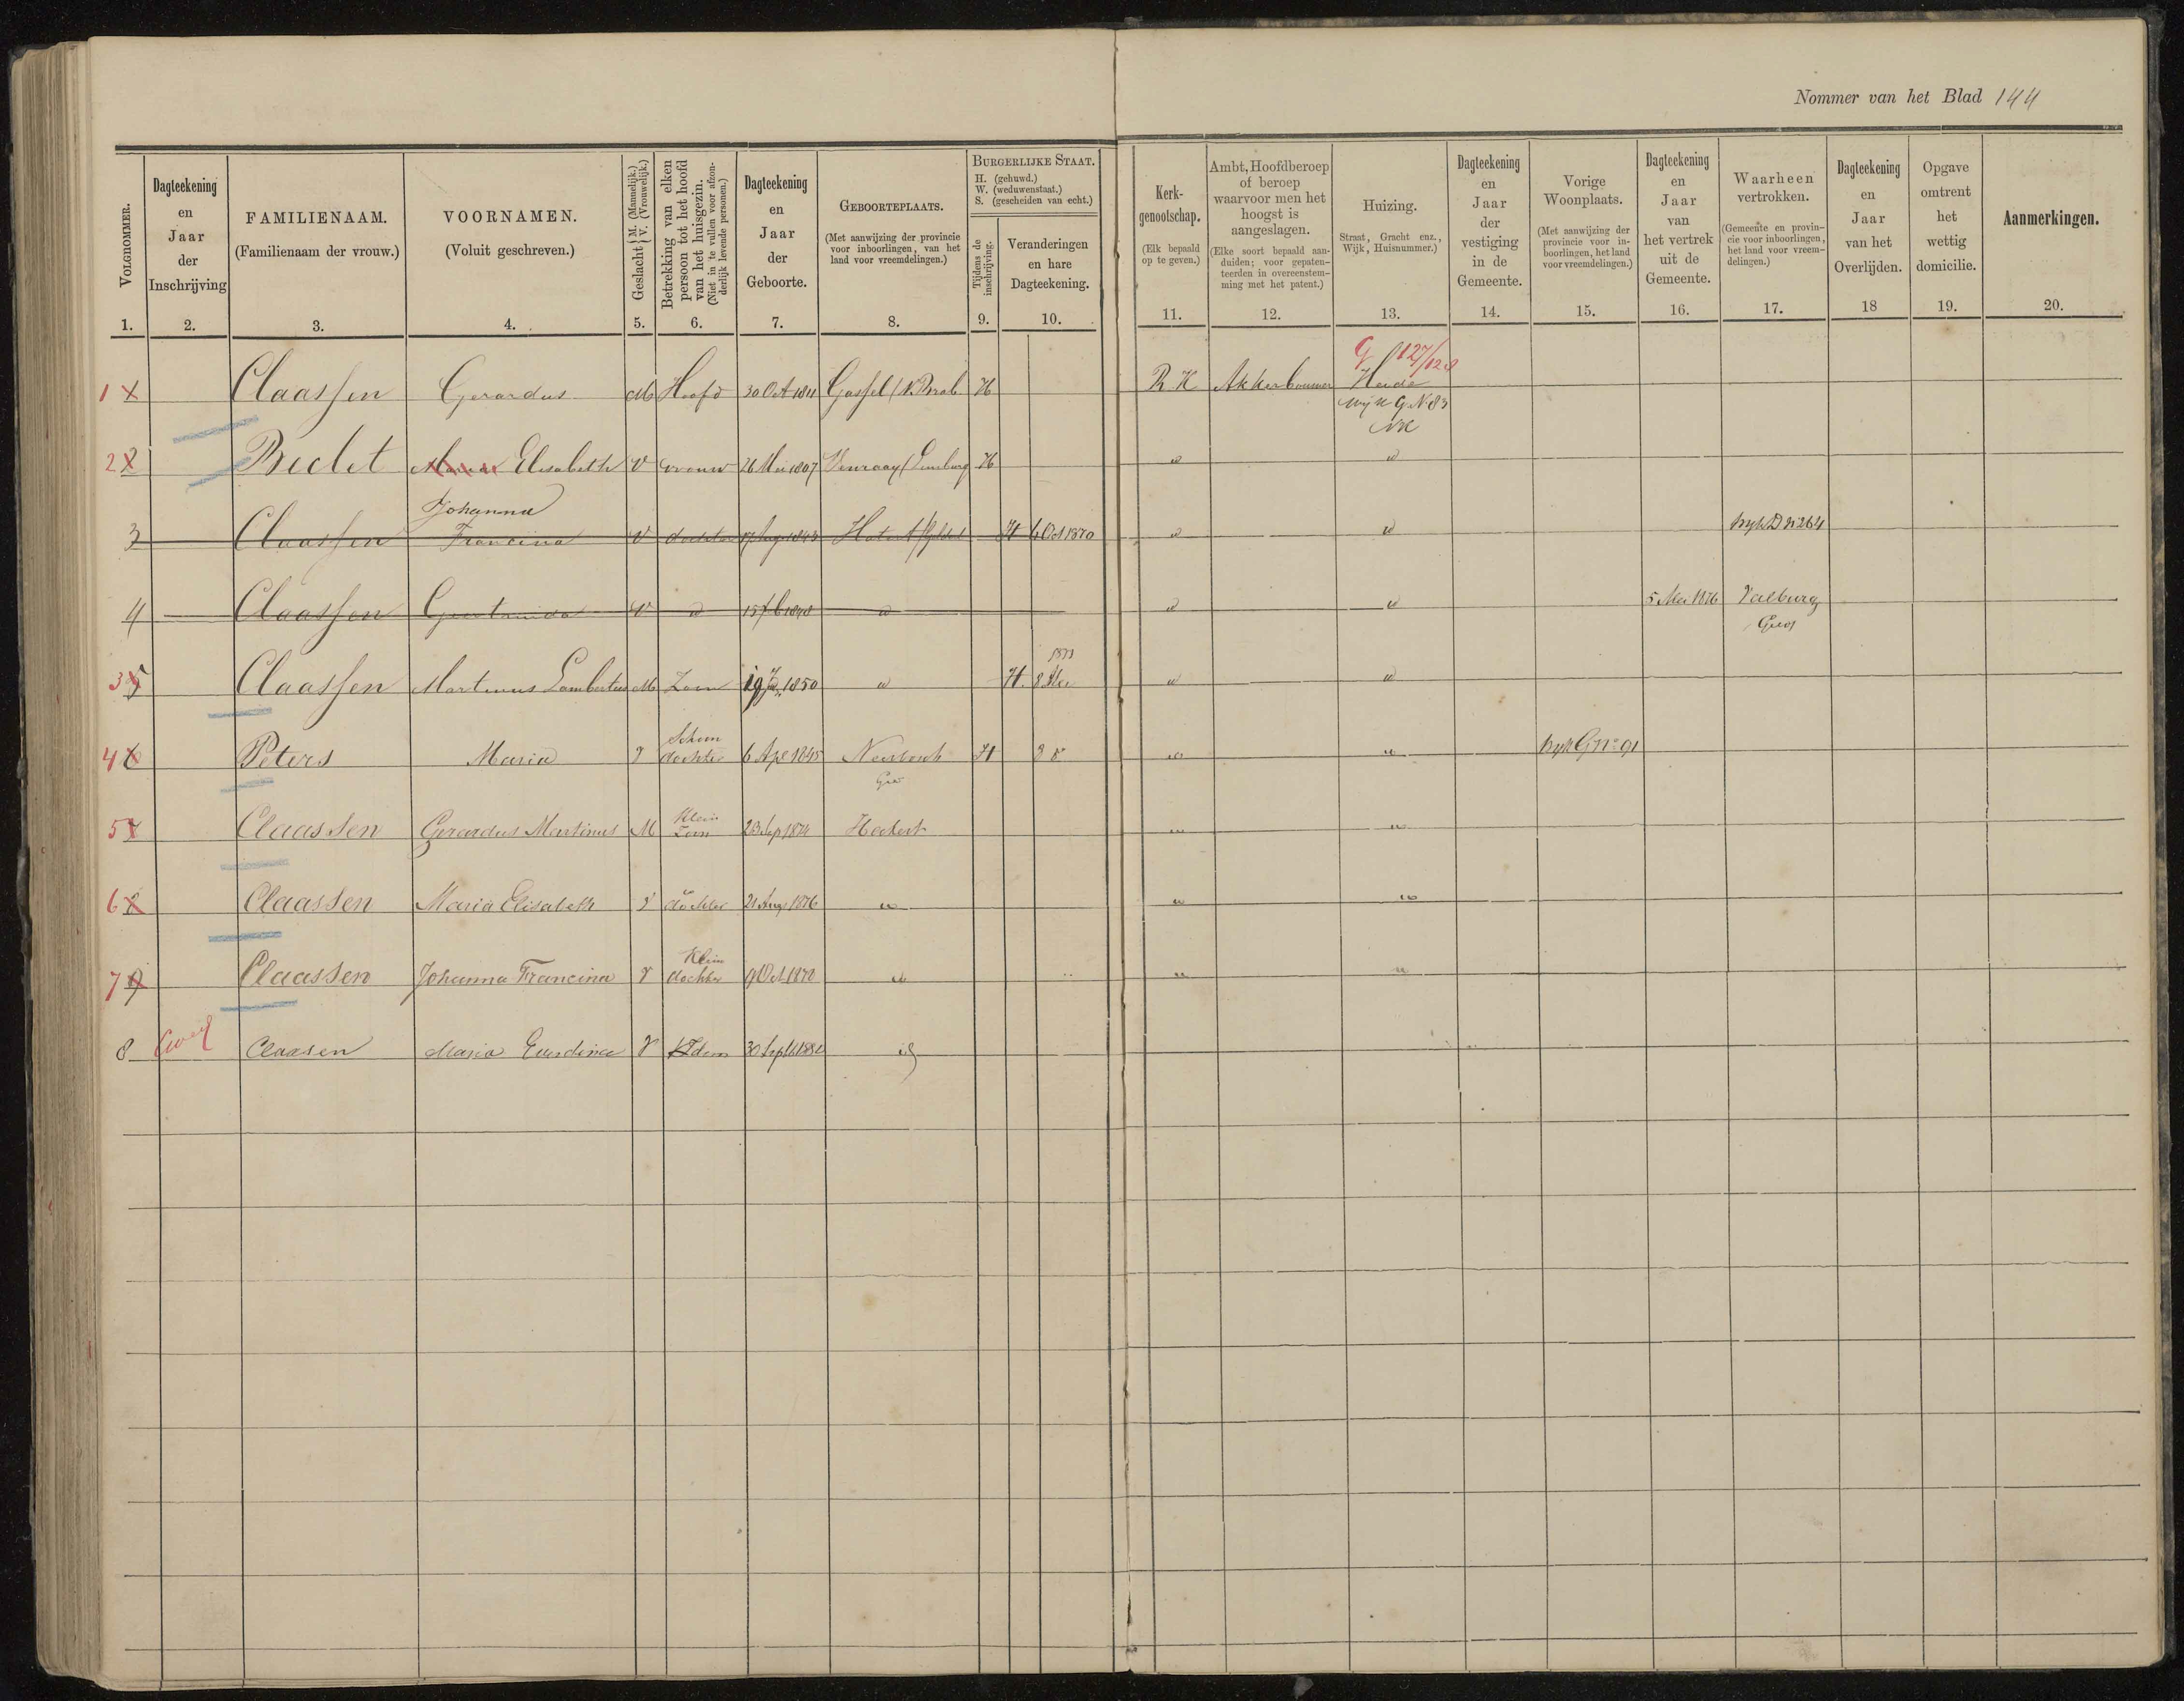 Nommer van het Blad 144
VOLGNOMMER. 1.
Dagteekening en Jaar der Inschrijving 2.
FAMILIENAAM. (Familienaam der vrouw.) 3.
VOORNAMEN. (Voluit geschreven.) 4.
Geslacht { M. (Mannelijk.) V. (Vrouwelijk.) 5.
Betrekking van elken persoon tot het hoofd van het huisgezin. (Niet in te vullen voor afzonderlijk levende personen.) 6.
Dagteekening en Jaar der Geboorte. 7.
GEBOORTEPLAATS. (Met aanwijzing der provincie voor inboorlingen, van het land voor vreemdelingen.) 8.
BURGERLIJKE STAAT. H. (gehuwd.) W. (weduwenstaat.) S. (gescheiden van echt.)
Tijdens de inschrijving. 9.
Veranderingen en hare Dagteekening. 10.
Kerkgenootschap. (Elk bepaald op te geven.) 11.
Ambt, Hoofdberoep of beroep waarvoor men het hoogst is aangeslagen. (Elke soort bepaald aanduiden; voor gepatenteerden in overeenstemming met het patent.) 12.
Huizing. Straat, Gracht enz., Wijk, Huisnummer.) 13.
Dagteekening en Jaar der vestiging in de Gemeente. 14.
Vorige Woonplaats. (Met aanwijzing der provincie voor inboorlingen, het land voor vreemdelingen.) 15.
Dagteekening en Jaar van het vertrek uit de Gemeente. 16.
Waarheen vertrokken. (Gemeente en provincie voor inboorlingen, het land voor vreemdelingen.) 17.
Dagteekening en Jaar van het Overlijden. 18
Opgave omtrent het wettig domicilie. 19.
Aanmerkingen. 20.
G 127/128
1 Claassen Gerardus M Hoofd 30 Oct 1811 Gassel (N. Brab. H R. K Akkerbouwer Heide
wijk G. N. 83
2 2 Elisabeth V vrouw 26 Mei 1807 Venraay (Limburg H " "
Johanna
3 Claassen Francina V dochter 17 Aug 1843 H 6 Oct 1870 " " wyk D n 264
4 Claassen V " " " " 5 Mei 1876 Valburg
3 5 Claassen Martinus Lambertus M Zoon 1850 " H. 8 Mei 1873 " "
Schoon
4 6 Peters Maria V dochter 6 Apl 1845 H " " wyk G No 91
Klein
5 7 Claassen Gerardus Martinus M Zoon 23 Sep 1874 " "
6 8 Claassen Maria Elisabeth V dochter 21 Aug 1876 " " "
Klein
7 9 Claassen Johanna Francina V dochter 9 Oct " " "
8 Claasen Maria V 30 Sept id